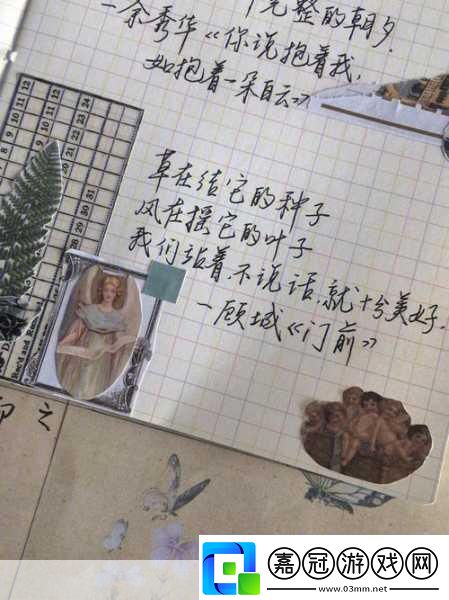 完整的朝夕.
—余秀华《你说抱着我,
如抱着一朵白云》
草在结它的种子
风在摇它的叶子
我们站着,不说话,就十分美好.
—顾城《门前》
8 9 10 11 12
20 21 22 23 24
之
嘉冠游戏网
www.03mm.net